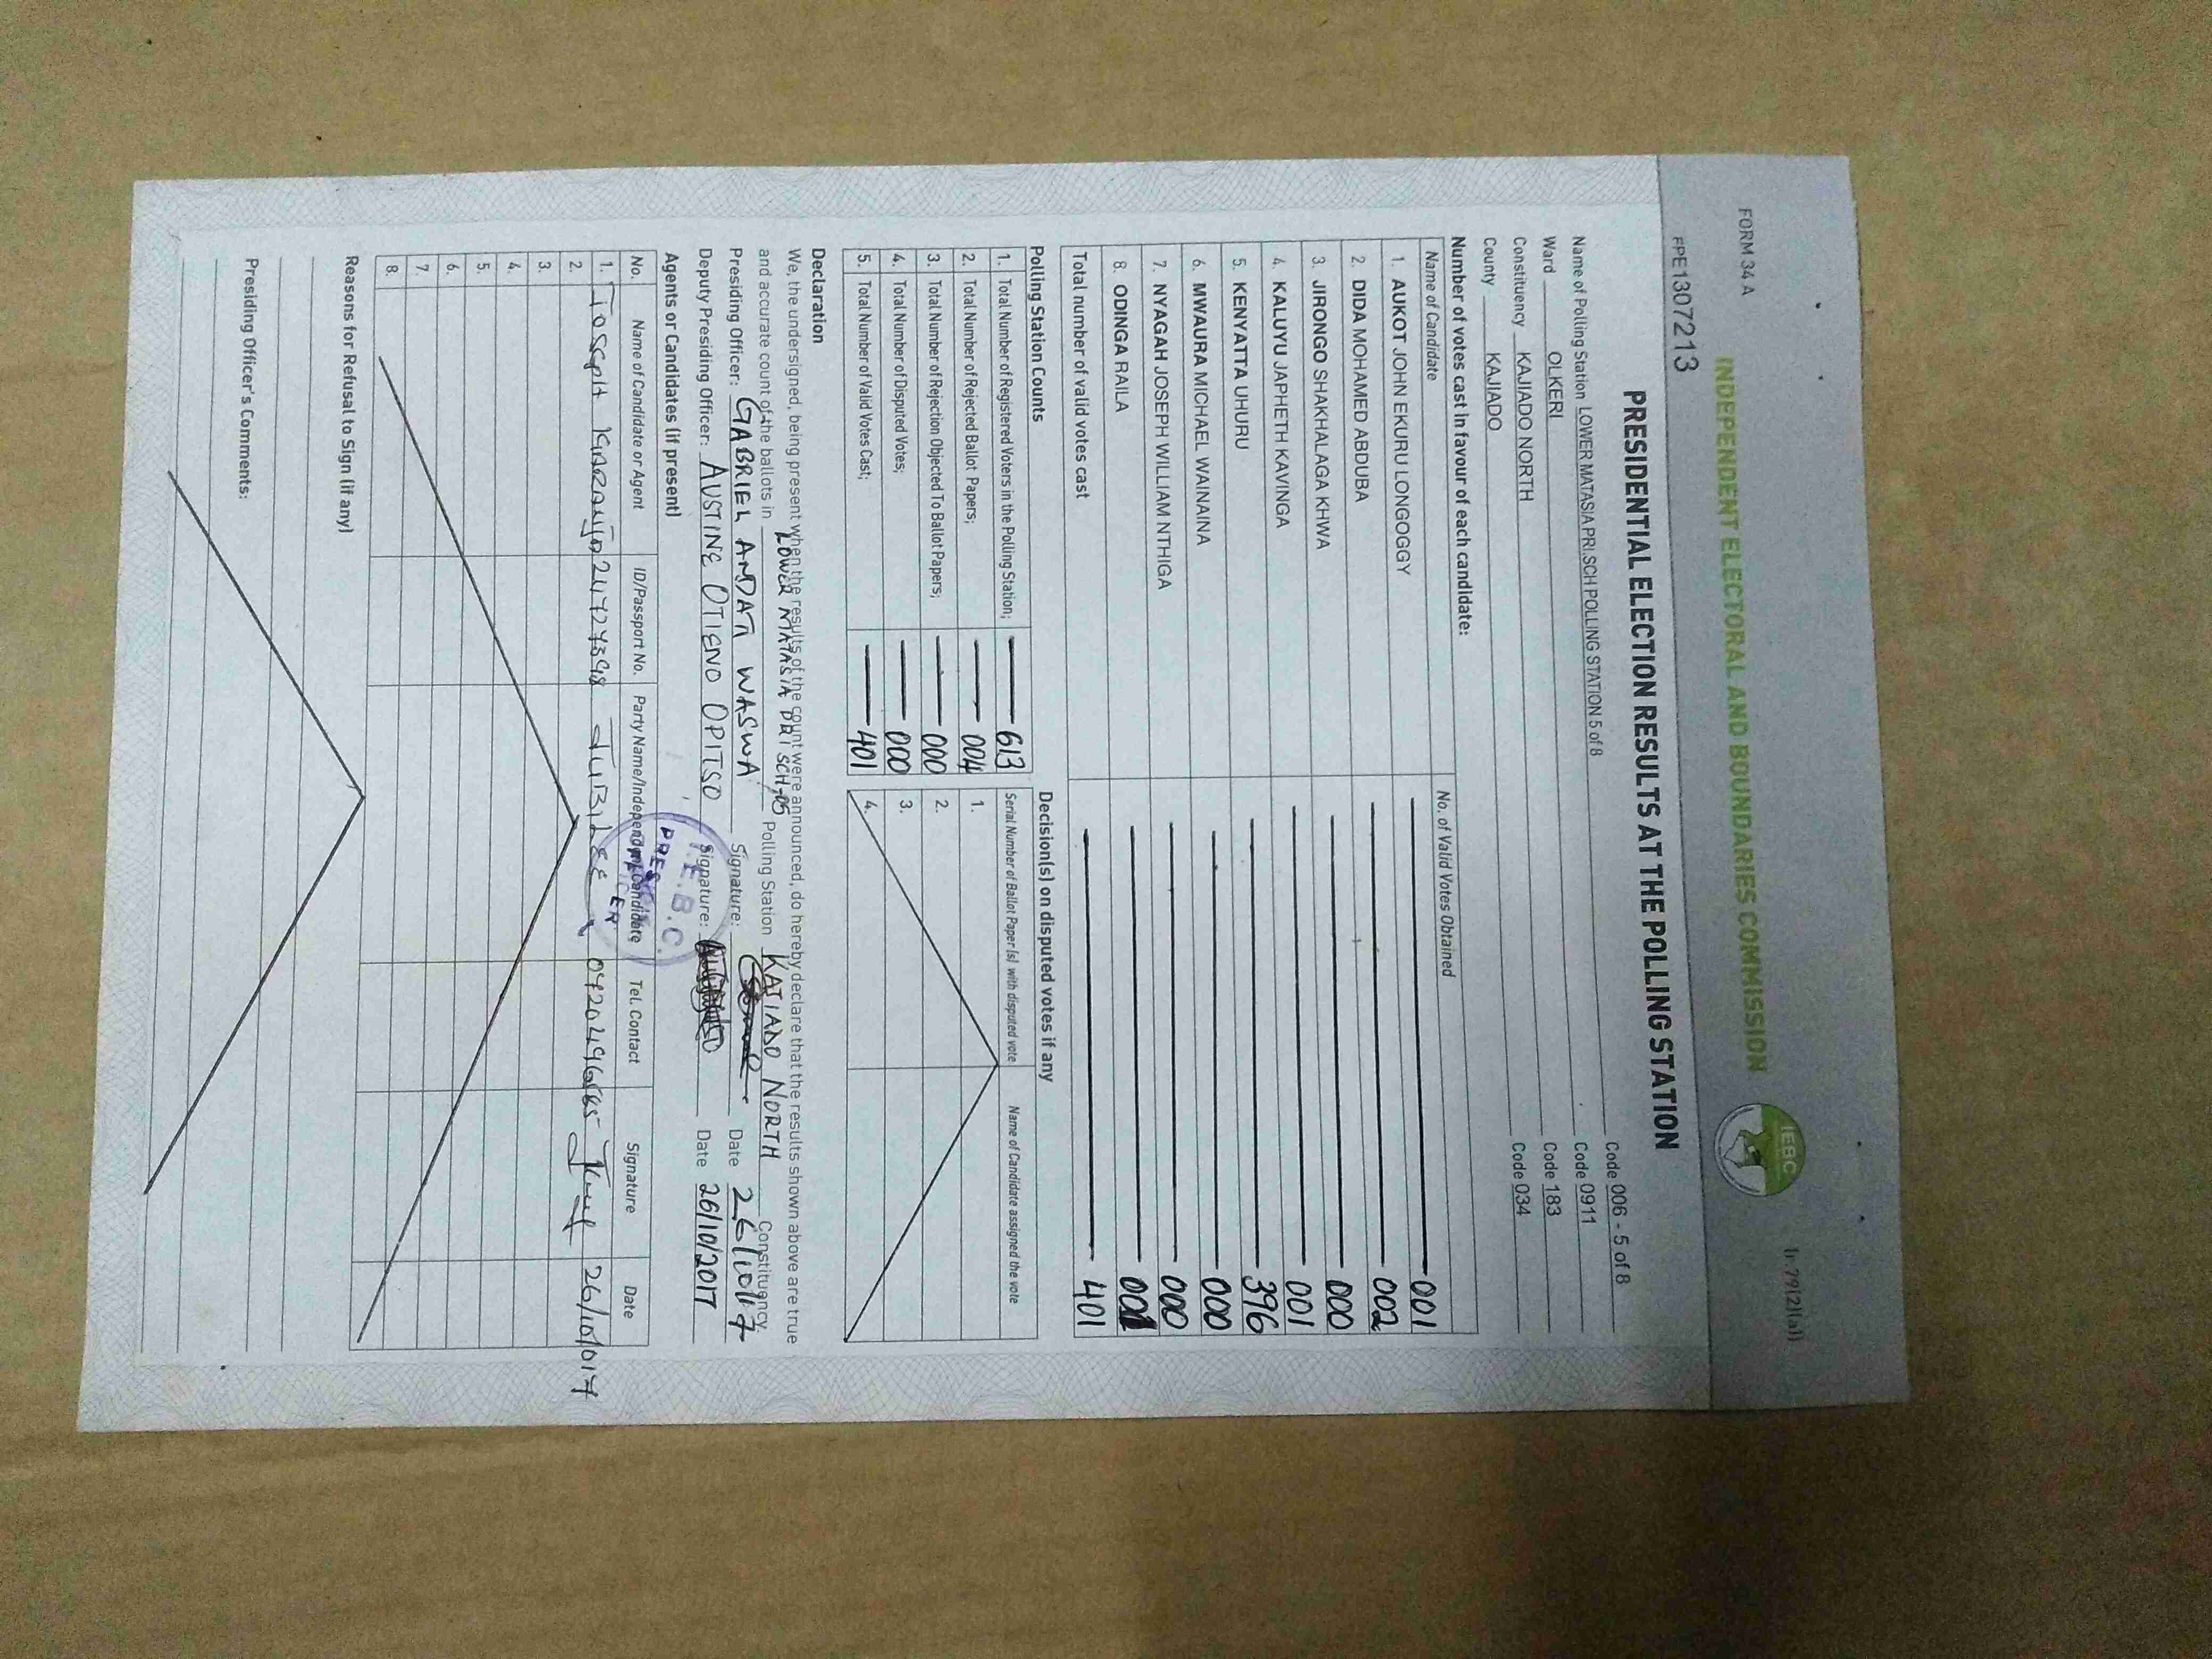 FORM 34 A
(r.79(2)(a))
INDEPENDENT ELECTORAL AND BOUNDARIES COMMISSION
IEBC
FPE1307213
PRESIDENTIAL ELECTION RESULTS AT THE POLLING STATION
Name of Polling Station LOWER MATASIA PRI.SCH POLLING STATION 5 of 8 Code 006 - 5 of 8
Ward OLKERI Code 0911
Constituency KAJIADO NORTH Code 183
County KAJIADO Code 034
Number of votes cast in favour of each candidate:
Name of Candidate No. of Valid Votes Obtained
1. AUKOT JOHN EKURU LONGOGGY 001
2. DIDA MOHAMED ABDUBA 002
3. JIRONGO SHAKHALAGA KHWA 000
4. KALUYU JAPHETH KAVINGA 001
5. KENYATTA UHURU 396
6. MWAURA MICHAEL WAINAINA 000
7. NYAGAH JOSEPH WILLIAM NTHIGA 000
8. ODINGA RAILA 001
Total number of valid votes cast 401
Polling Station Counts
1. Total Number of Registered Voters in the Polling Station; 613
2. Total Number of Rejected Ballot Papers; 004
3. Total Number of Rejection Objected To Ballot Papers; 000
4. Total Number of Disputed Votes; 000
5. Total Number of Valid Votes Cast; 401
Decision(s) on disputed votes if any
Serial Number of Ballot Paper (s) with disputed vote Name of Candidate assigned the vote
1.
2.
3.
4.
Declaration
We, the undersigned, being present when the results of the count were announced, do hereby declare that the results shown above are true
and accurate count of the ballots in LOWER MATASIA PRI SCH-05 Polling Station KAJIADO NORTH Constituency.
Presiding Officer: GABRIEL ANDATI WASWA Signature: Date 26/10/17
Deputy Presiding Officer: AUSTINE OTIENO OPITSO Signature: Date 26/10/2017
I.E.B.C.
Agents or Candidates (if present)
No. Name of Candidate or Agent ID/Passport No. Party Name/Independent Candidate Tel. Contact Signature Date
1. Joseph JUBILEE 26/10/017
2.
3.
4.
5.
6.
7.
8.
Reasons for Refusal to Sign (if any)
Presiding Officer's Comments: